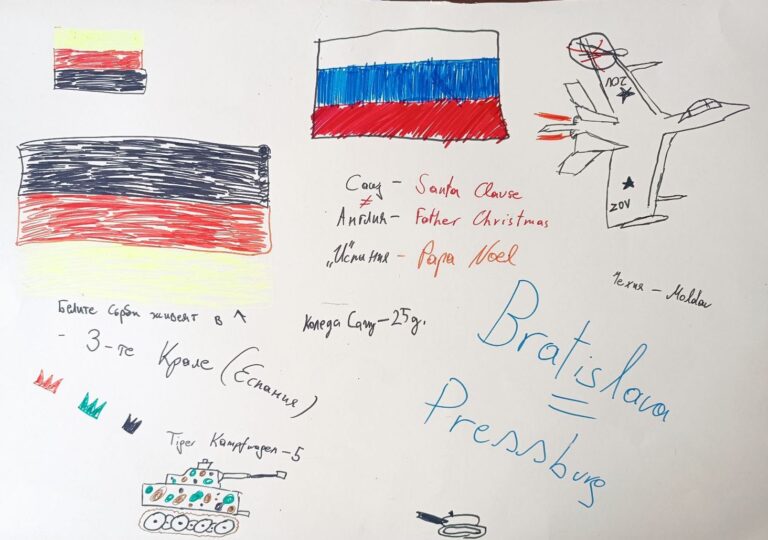 ZOV
ZOV
Сащ – Santa Clause
≠
Англия – Father Christmas
„Испания – Papa Noel
Чехия – Moldau
Белите сърби живеят в ^
Коледа Сащ – 25 д.
- 3-те Крале (Еспания)
Bratislava
=
Pressburg
Tiger Kampfwagen – 5